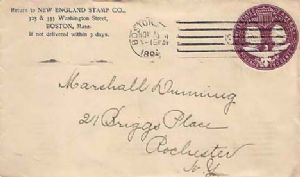 Return to NEW ENGLAND STAMP CO.,
Washington Street,
BOSTON, Mass.
If not delivered within 5 days.
BOSTON
NOV
Marshall Dunning
21 Briggs Place
Rochester
N. Y.